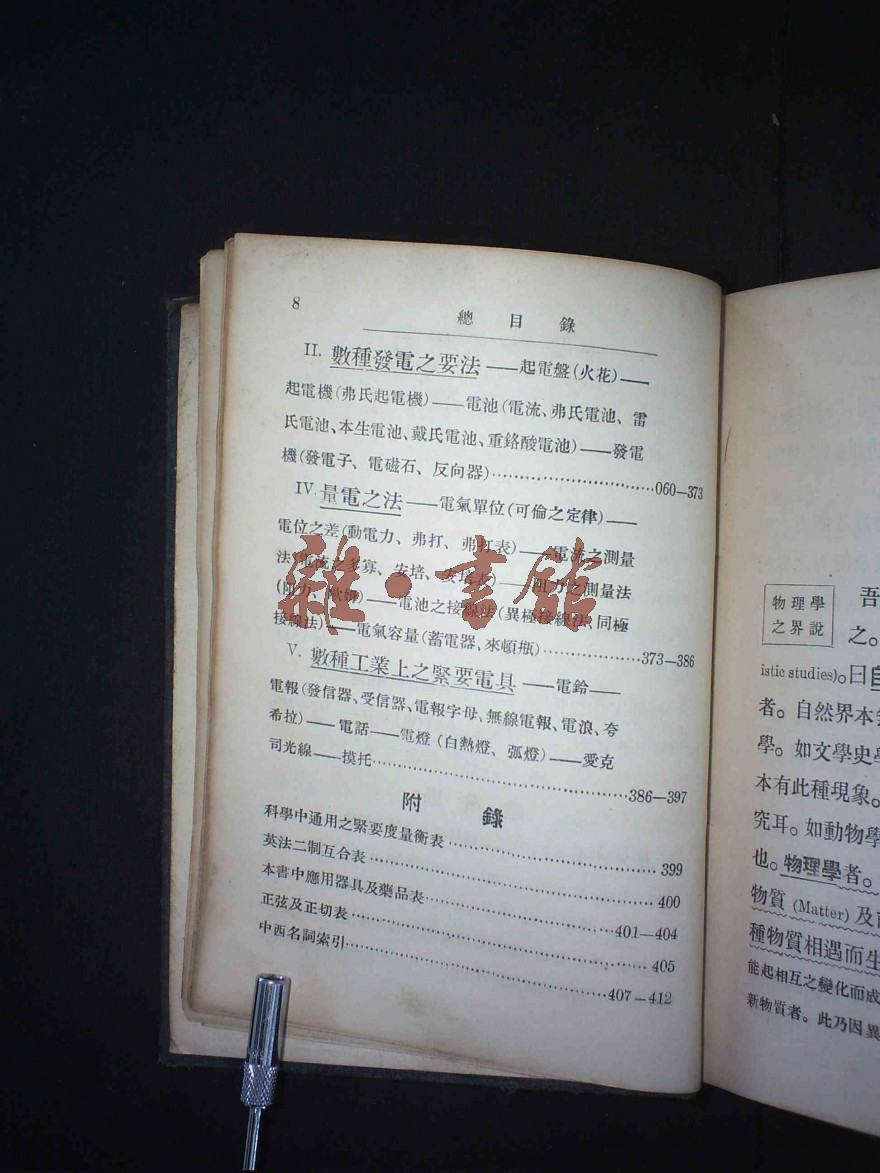 8
總目錄
II. 數種發電之要法——起電盤(火花)——
起電機(弗氏起電機)——電池(電流、弗氏電池、雷
氏電池、本生電池、戴氏電池、重鉻酸電池)——發電
機(發電子、電磁石、反向器)……060—373
IV. 量電之法——電氣單位(可倫之定律)——
電位之差(動電力、弗打、弗打表)——電流之測量
法(電流之多寡、安培、安培表)——阻力之測量法
(阻力、歐姆)——電池之接線法(異極接線法、同極
接線法)——電氣容量(蓄電器、來頓瓶)……373—386
V. 數種工業上之緊要電具——電鈴——
電報(發信器、受信器、電報字母、無線電報、電浪、夸
希拉)——電話——電燈(白熱燈、弧燈)——愛克
司光線——摸托……386—397
附錄
科學中通用之緊要度量衡表……399
英法二制互合表……400
本書中應用器具及藥品表……401—404
正弦及正切表……405
中西名詞索引……407—412
雜·書館
物理學
之界說
吾
之。
istic studies)。曰自
者。自然界本
學。如文學史學
本有此種現象。
究耳。如動物學
也。物理學者。
物質 (Matter) 及
種物質相遇而生
能起相互之變化而成
新物質者。此乃因異